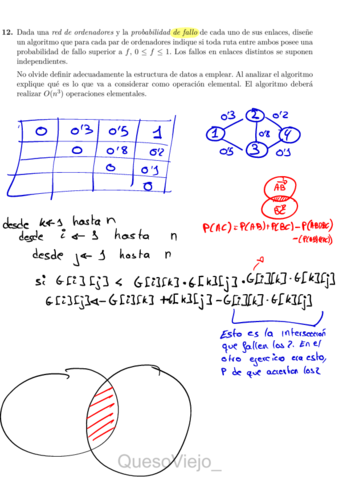 12. Dada una red de ordenadores y la probabilidad de fallo de cada uno de sus enlaces, diseñe
un algoritmo que para cada par de ordenadores indique si toda ruta entre ambos posee una
probabilidad de fallo superior a f, 0 ≤ f ≤ 1. Los fallos en enlaces distintos se suponen
independientes.
No olvide definir adecuadamente la estructura de datos a emplear. Al analizar el algoritmo
explique qué es lo que va a considerar como operación elemental. El algoritmo deberá
realizar O(n³) operaciones elementales.
0 0'3 0'5 1
0 0'8 0'2
0 0'1
0
0'3 2 0'2
1 0'8 4
0'5 3 0'1
AB
BC
P(AC)=P(AB)+P(BC)-P(AB∩BC)
desde k←1 hasta n
desde i ← 1 hasta n
desde j ← 1 hasta n
si G[i][j] < G[i][k] + G[k][j] - G[i][k] · G[k][j]
G[i][j] ← G[i][k] + G[k][j] - G[i][k] · G[k][j]
Esto es la intersección
que fallen los 2. En el
otro ejercicio era esto,
P de que aciertan los 2
QuesoViejo_